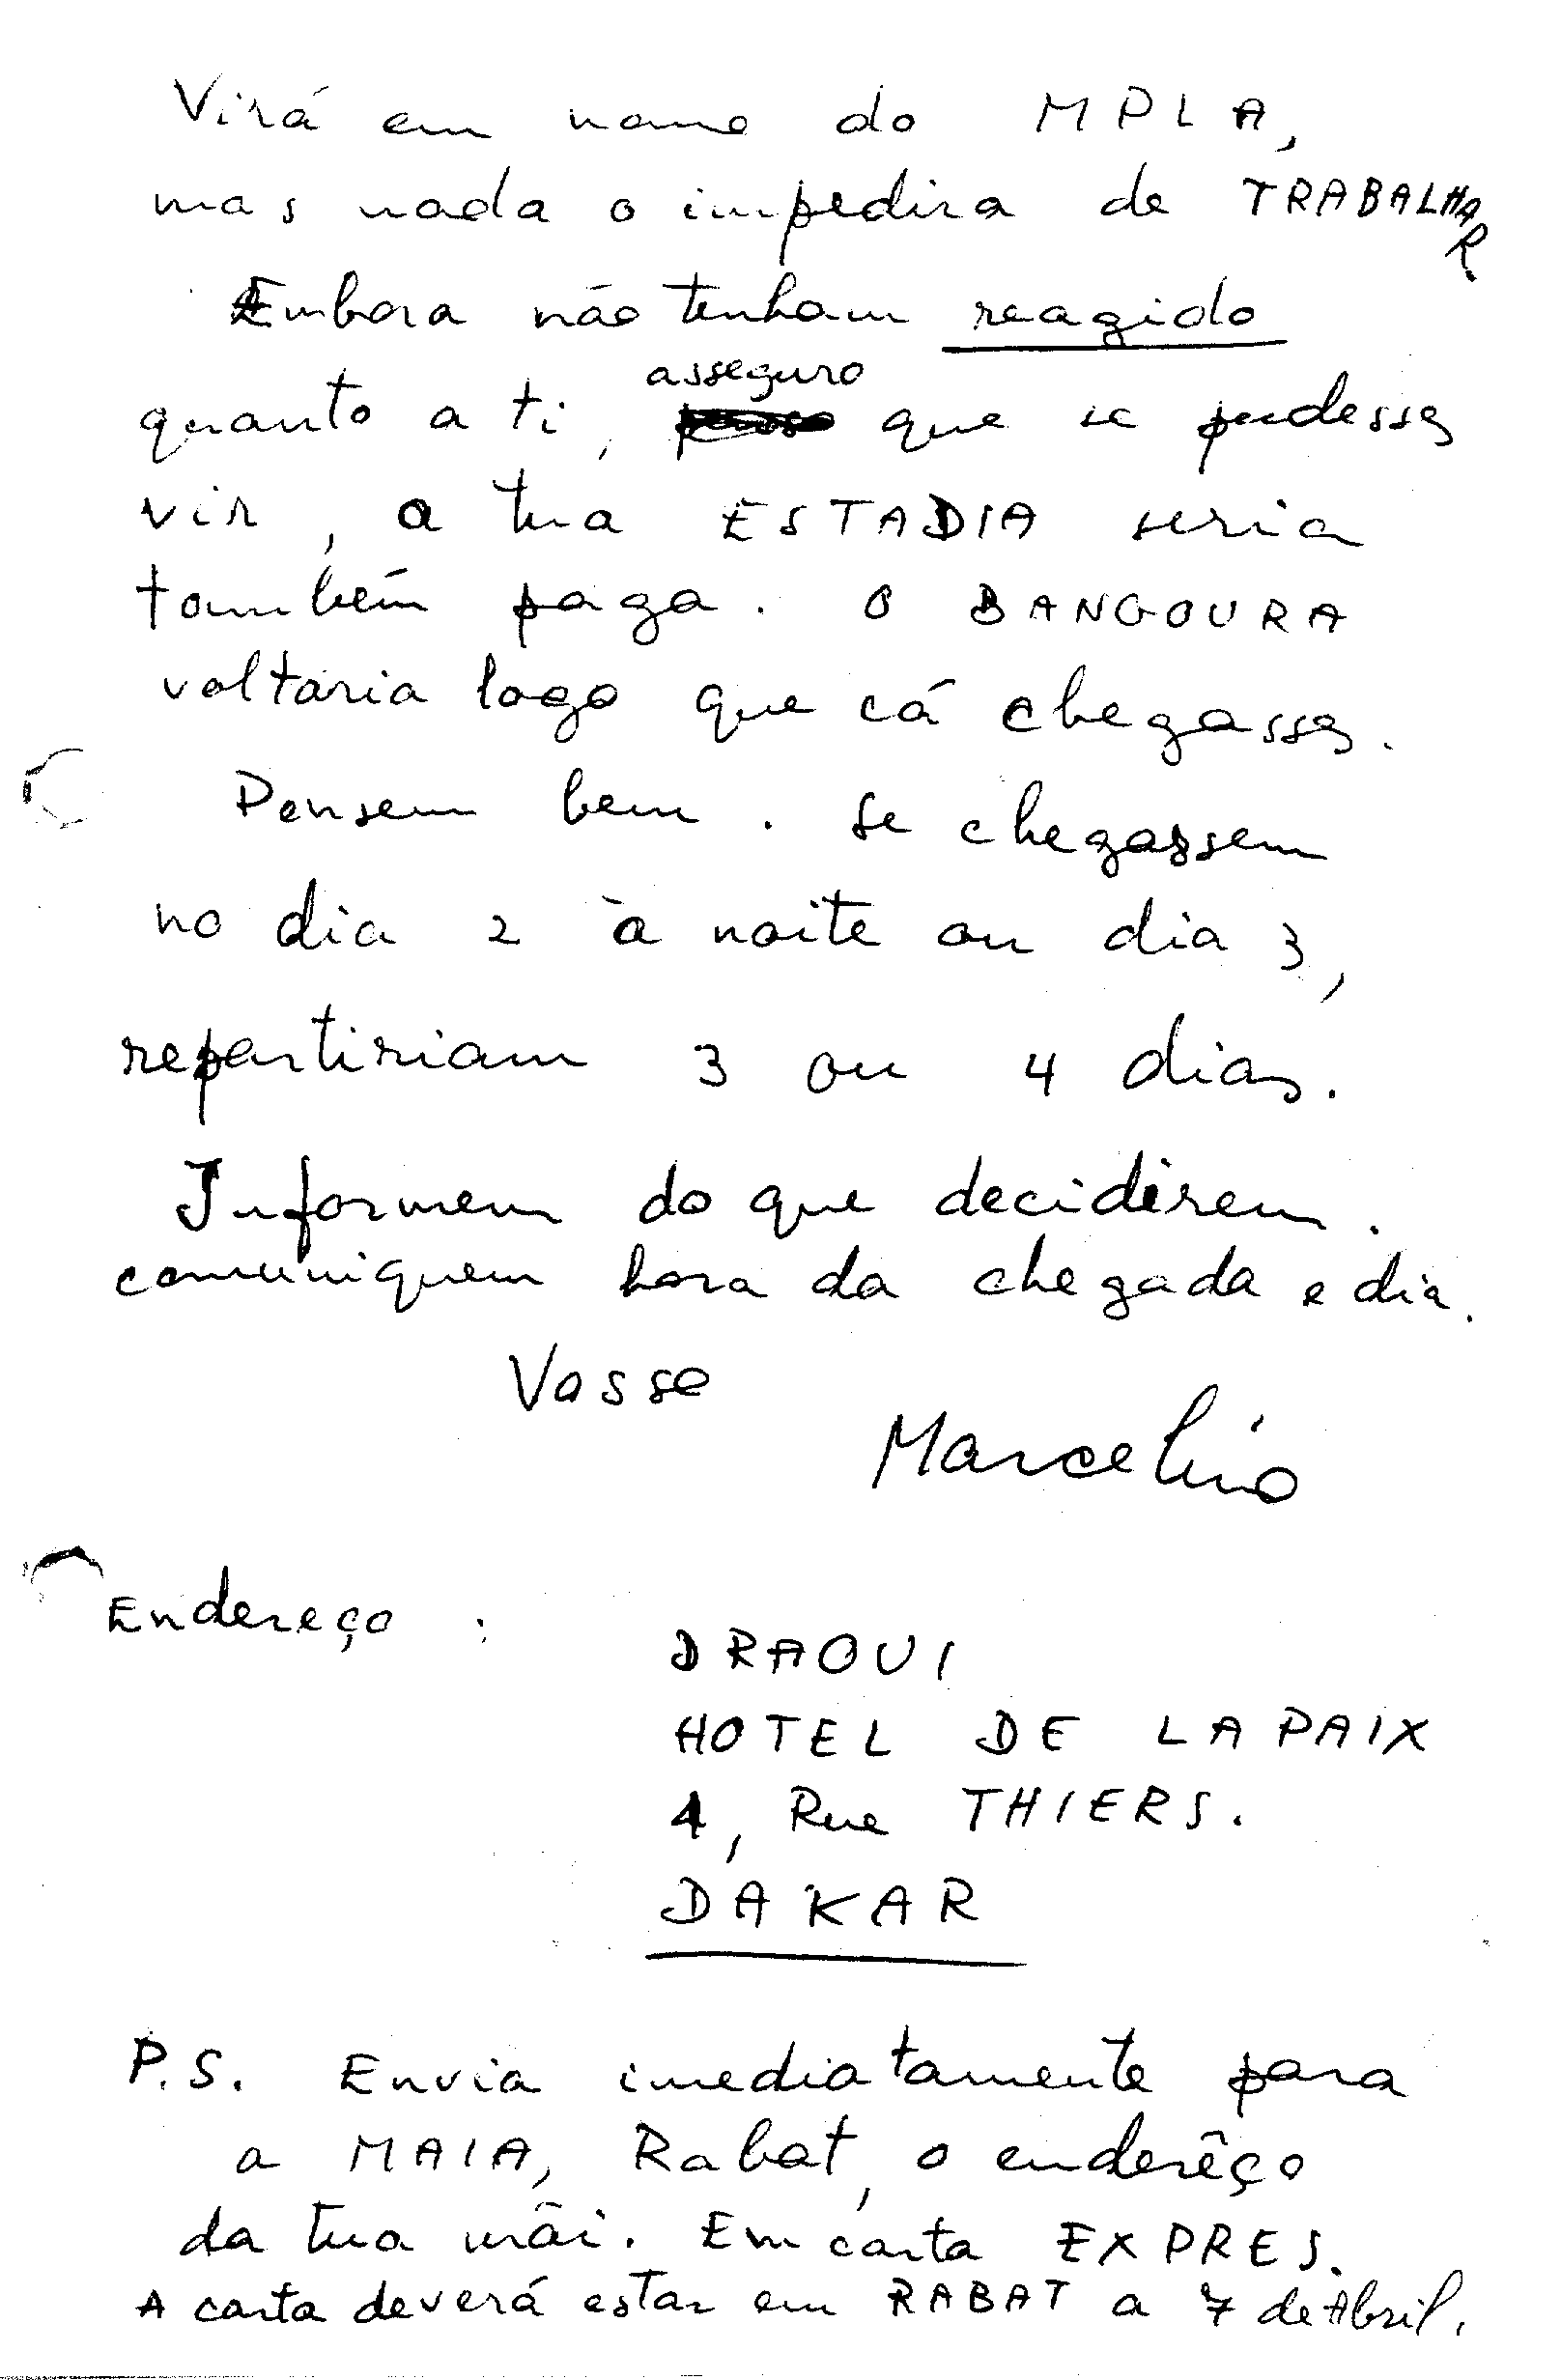 Virá em nome do MPLA,
mas nada o impedira de TRABALHAR
Embora não tenham reagido
quanto a ti, asseguro que se pudesses
vir, a tua ESTADIA seria
também paga. O BANGOURA
voltaria logo que cá chegasses.
Pensem bem. Se chegassem
no dia 2 à noite ou dia 3,
repartiriam 3 ou 4 dias.
Informem do que decidirem.
comuniquem hora da chegada e dia.
Vosso
Marcelino
Endereço :
DRAOUI
HOTEL DE LA PAIX
4, Rue THIERS.
DAKAR
P.S. Envia imediatamente para
a MAIA, Rabat, o enderêço
da tua mãi. Em carta EXPRES.
A carta deverá estar em RABAT a 7 de Abril.